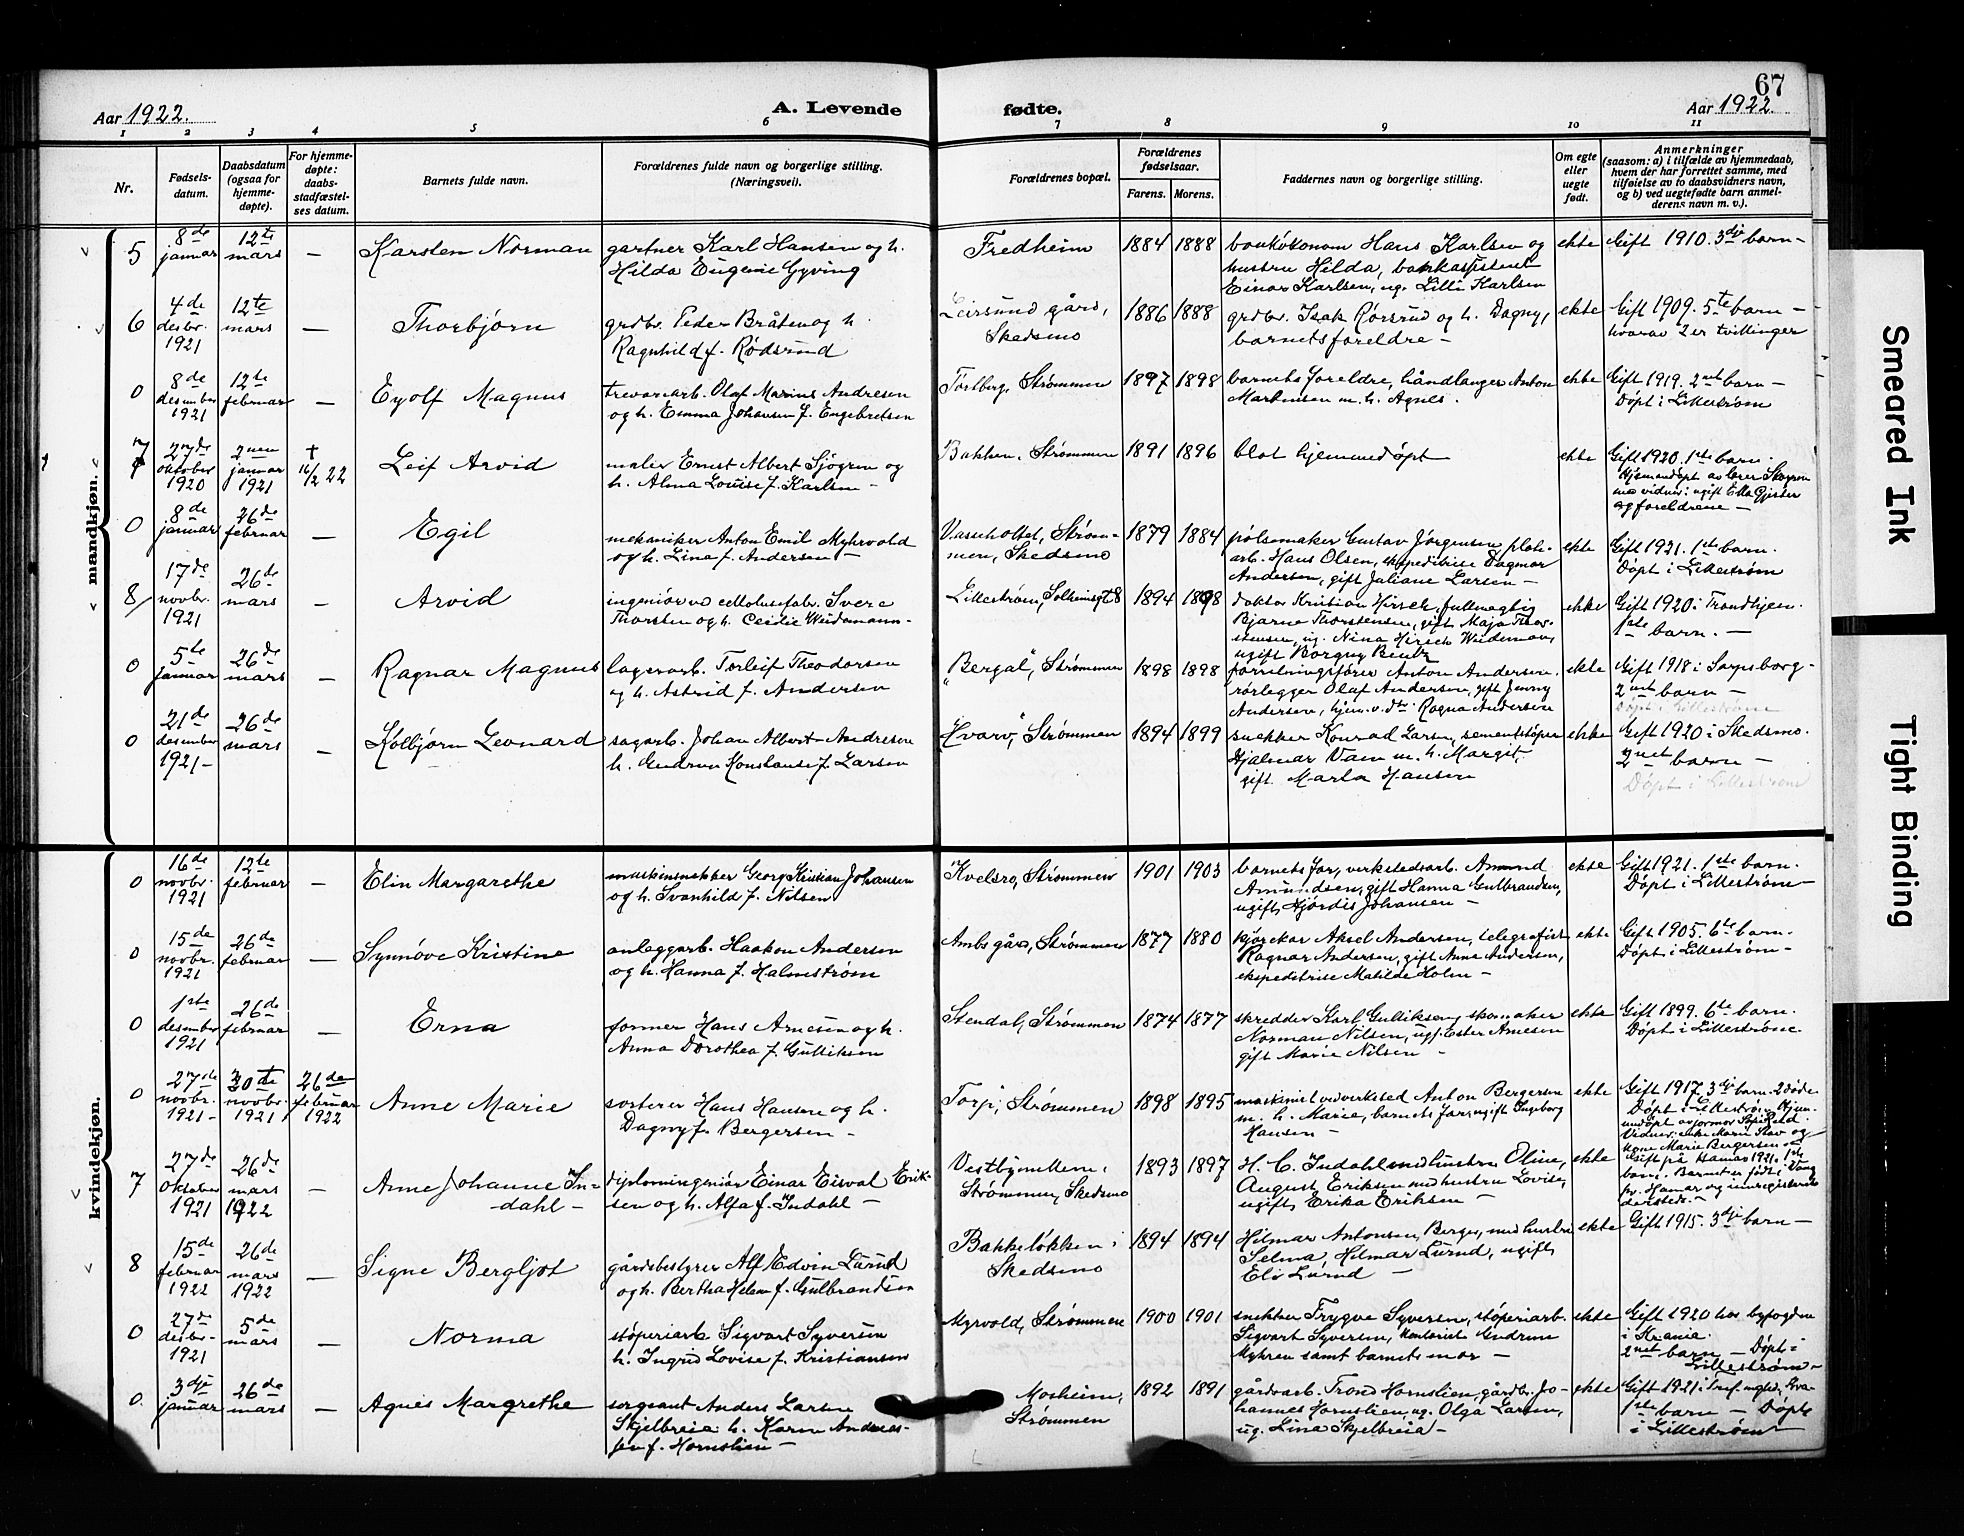 67
Aar 1922.
A. Levende
fødte.
Aar 1922.
1 2 3 4 5 6 7 8 9 10 11
Nr.
Fødsels-
datum.
Daabsdatum
(ogsaa for
hjemme-
døpte).
For hjemme-
døpte:
daabs-
stadfæstel-
ses datum.
Barnets fulde navn.
Forældrenes fulde navn og borgerlige stilling.
(Næringsvei).
Forældrenes bopæl.
Forældrenes
fødselsaar.
Farens. Morens.
Faddernes navn og borgerlige stilling.
Om egte
eller
uegte
født.
Anmerkninger
(saasom: a) i tilfælde av hjemmedaab,
hvem der har forrettet samme, med
tilføielse av to daabsvidners navn,
og b) ved uegtefødte barn anmel-
derens navn m. v.).
mandkjøn.
5
8de
januar
12te
mars
—
Karsten Norman
gartner Karl Hansen og h.
Hilda Eugenie Gyving
Fredheim
1884 1888
bankøkonom Hans Karlsen og
hustru Hilda, bankassistent
Einar Karlsen, ug. Lilli Karlsen
ekte
Gift 1910. 3dje barn —
6
4de
desbr.
1921
12te
mars
—
Thorbjørn
grdbr. Peder Bråten og h.
Ragnhild f. Rødsrud
Leirsund gård,
Skedsmo
1886 1888
grdbr. Isak Rørsrud og h. Dagny,
barnets foreldre —
ekte
Gift 1909. 5te barn —
hvorav 2 er tvillinger
0
8de
desember
1921
12te
februar
—
Eyolf Magnus
trevarearb. Olaf Marius Andresen
og h. Emma Johansen f. Engebretsen
Torlberg, Strømmen
1897 1898
barnets foreldre, håndlanger Anton
Martinsen m. h. Agnes.
ekte
Gift 1919. 2net barn —
Døpt i Lillestrøm
7
27de
oktober
1920
2nen
januar
1921
†
16/2 22
Leif Arvid
maler Ernst Albert Sjøgren og
h. Alma Louise f. Karlsen —
Bakken, Strømmen
1891 1896
blot hjemmedøpt
ekte
Gift 1920. 1ste barn.
Hjemmedøpt av lærer
med vidner: ugift Ella Gjester
og foreldrene —
0
8de
januar
26de
februar
—
Egil
mekaniker Anton Emil Myhrvold
og h. Lina f. Andersen —
Vasseholtet, Strøm-
men, Skedsmo
1879 1884
pølsemaker Gustav Jørgensen, plate-
arb. Hans Olsen, ekspeditrise Dagmar
Andersen, gift Juliane Larsen —
ekte
Gift 1921. 1ste barn.
Døpt i Lillestrøm
8
17de
novbr.
1921
26de
mars
—
Arvid
ingeniør ved cellulosefabr. Svere
Thorsten og h. Cecilie Weidemann —
Lillestrøm, Solheimsgt 8
1894 1898
doktor Kristian Hirsch, fullmegtig
Bjarne Thorstensen, gift Maja Thor-
stensen, ug. Nina Hirsch Weideman,
ugift Borgny Bentz
ekte
Gift 1920 i Trondhjem.
1ste barn. —
0
5te
januar
26de
mars
—
Ragnar Magnus
lagerarb. Torleif Theodorsen
og h. Astrid f. Andersen
"Bergal", Strømmen
1898 1898
forretningsfører Anton Andersen,
rørlegger Olaf Andersen, gift Jenny
Andersen, hjem. v. dtr. Ragna Andersen
ekte
Gift 1918 i Sarpsborg —
2net barn —
Døpt i Lillestrøm
0
21de
desember
1921 —
26de
mars
—
Kolbjørn Leonard
sagarb. Johan Albert Andresen
h. Gudrun Konstanse f. Larsen
"Hvarv", Strømmen
1894 1899
snekker Konrad Larsen, sementstøper
Hjalmar Vam m. h. Margit,
gift Marla Hansen
ekte
Gift 1920 i Skedsmo.
2net barn —
Døpt i Lillestrøm
kvindekjøn.
0
16de
novbr.
1921
12te
februar
—
Elin Margarethe
maskinsnekker Georg Kristian Johansen
og h. Svanhild f. Nilsen
Kvelsro, Strømmen
1901 1903
barnets far, verkstedsarb. Amund
Amundsen, gift Hanna Gulbrandsen,
ugift Hjørdis Johansen —
ekte
Gift 1921. 1ste barn.
Døpt i Lillestrøm —
0
15de
novbr.
1921
26de
februar
—
Synnøve Kristine
anleggarb. Haakon Andersen
og h. Hanna f. Halmstrøm
Ambs gård, Strømmen
1877 1880
Aksel Andersen, telegrafist
Ragnar Andersen, gift Anne Andersen,
ekspeditrise Matilde Holm —
ekte
Gift 1905. 6te barn.
Døpt i Lillestrøm —
0
1ste
desember
1921
26de
februar
—
Erna
former Hans Arnesen og h.
Anna Dorothea f. Gulliksen
Stendal, Strømmen
1874 1877
skredder Karl Gulliksen, skomaker
Norman Nilsen, ugf. Ester Arnesen
gift Marie Nilsen —
ekte
Gift 1899. 6te barn.
Døpt i Lillestrøm
0
27de
novbr.
1921 —
30te
novbr.
1921
26de
februar
1922
Anne Marie
sorterer Hans Hansen og h.
Dagny f. Bergersen —
Torp, Strømmen
1898 1895
maskinist ved verksted Anton Bergersen
m. h. Marie, barnets far, ugift Ingeborg
Hansen —
ekte
Gift 1917. 3dje barn. 2 døde
Døpt i Lillestrøm. Hjem-
medøpt av jormor
Vidner: enke Marie og
kone Marie Bergersen
7
27de
oktober
1921
26de
mars
1922
—
Anne Johanne In-
dahl —
diplomingeniør Einar Eisval Erik-
sen og h. Alfa f. Indahl —
Vestbymellem,
Strømmen, Skedsmo
1893 1897
H. C. Indahl med hustru Oline,
August Eriksen med hustru Lovise,
ugift Erika Eriksen —
ekte
Gift på Hamar 1921. 1ste
barn. Barnet er født i Vang
pr. Hamar og innregistrert
dersteds. —
8
15de
februar
1922
26de
mars
1922
—
Signe Bergljot
gårdsbestyrer Alf Edvin Lurud
og h. Bertha Helene f. Gulbrandsen
Bakkeløkken i
Skedsmo
1894 1894
Hilmar Antonsen Berger, med hustru
Selma, Hilmar Lurud, ugift
Eli Lurud —
ekte
Gift 1915. 3dje barn —
0
27de
desbr.
1921
5de
mars
—
Norma
støperiarb. Sigvart Syversen
h. Ingrid Lovise f. Kristiansen
Myrvold, Strømmen
1900 1901
snekker Trygve Syversen, støperiarb.
Sigvart Syversen, kontorist Gudrun
Myhren samt barnets mor —
ekte
Gift 1920 hos byfogden
i Krania.
2net barn — Døpt i
Lillestrøm —
0
3dje
januar
26de
mars
—
Agnes Margrethe
sergeant Anders Larsen
Skjelbreia h. Karen Andreas-
sen f. Hornslien —
Mosheim,
Strømmen
1892 1891
gårdsarb. Trond Hornslien, gårdbr. Jo-
hannes Hornslien, ug. Olga Larsen,
ug. Lina Skjelbreia —
ekte
Gift 1921 i
1ste barn — Døpt
i Lillestrøm
Smeared Ink
Tight Binding